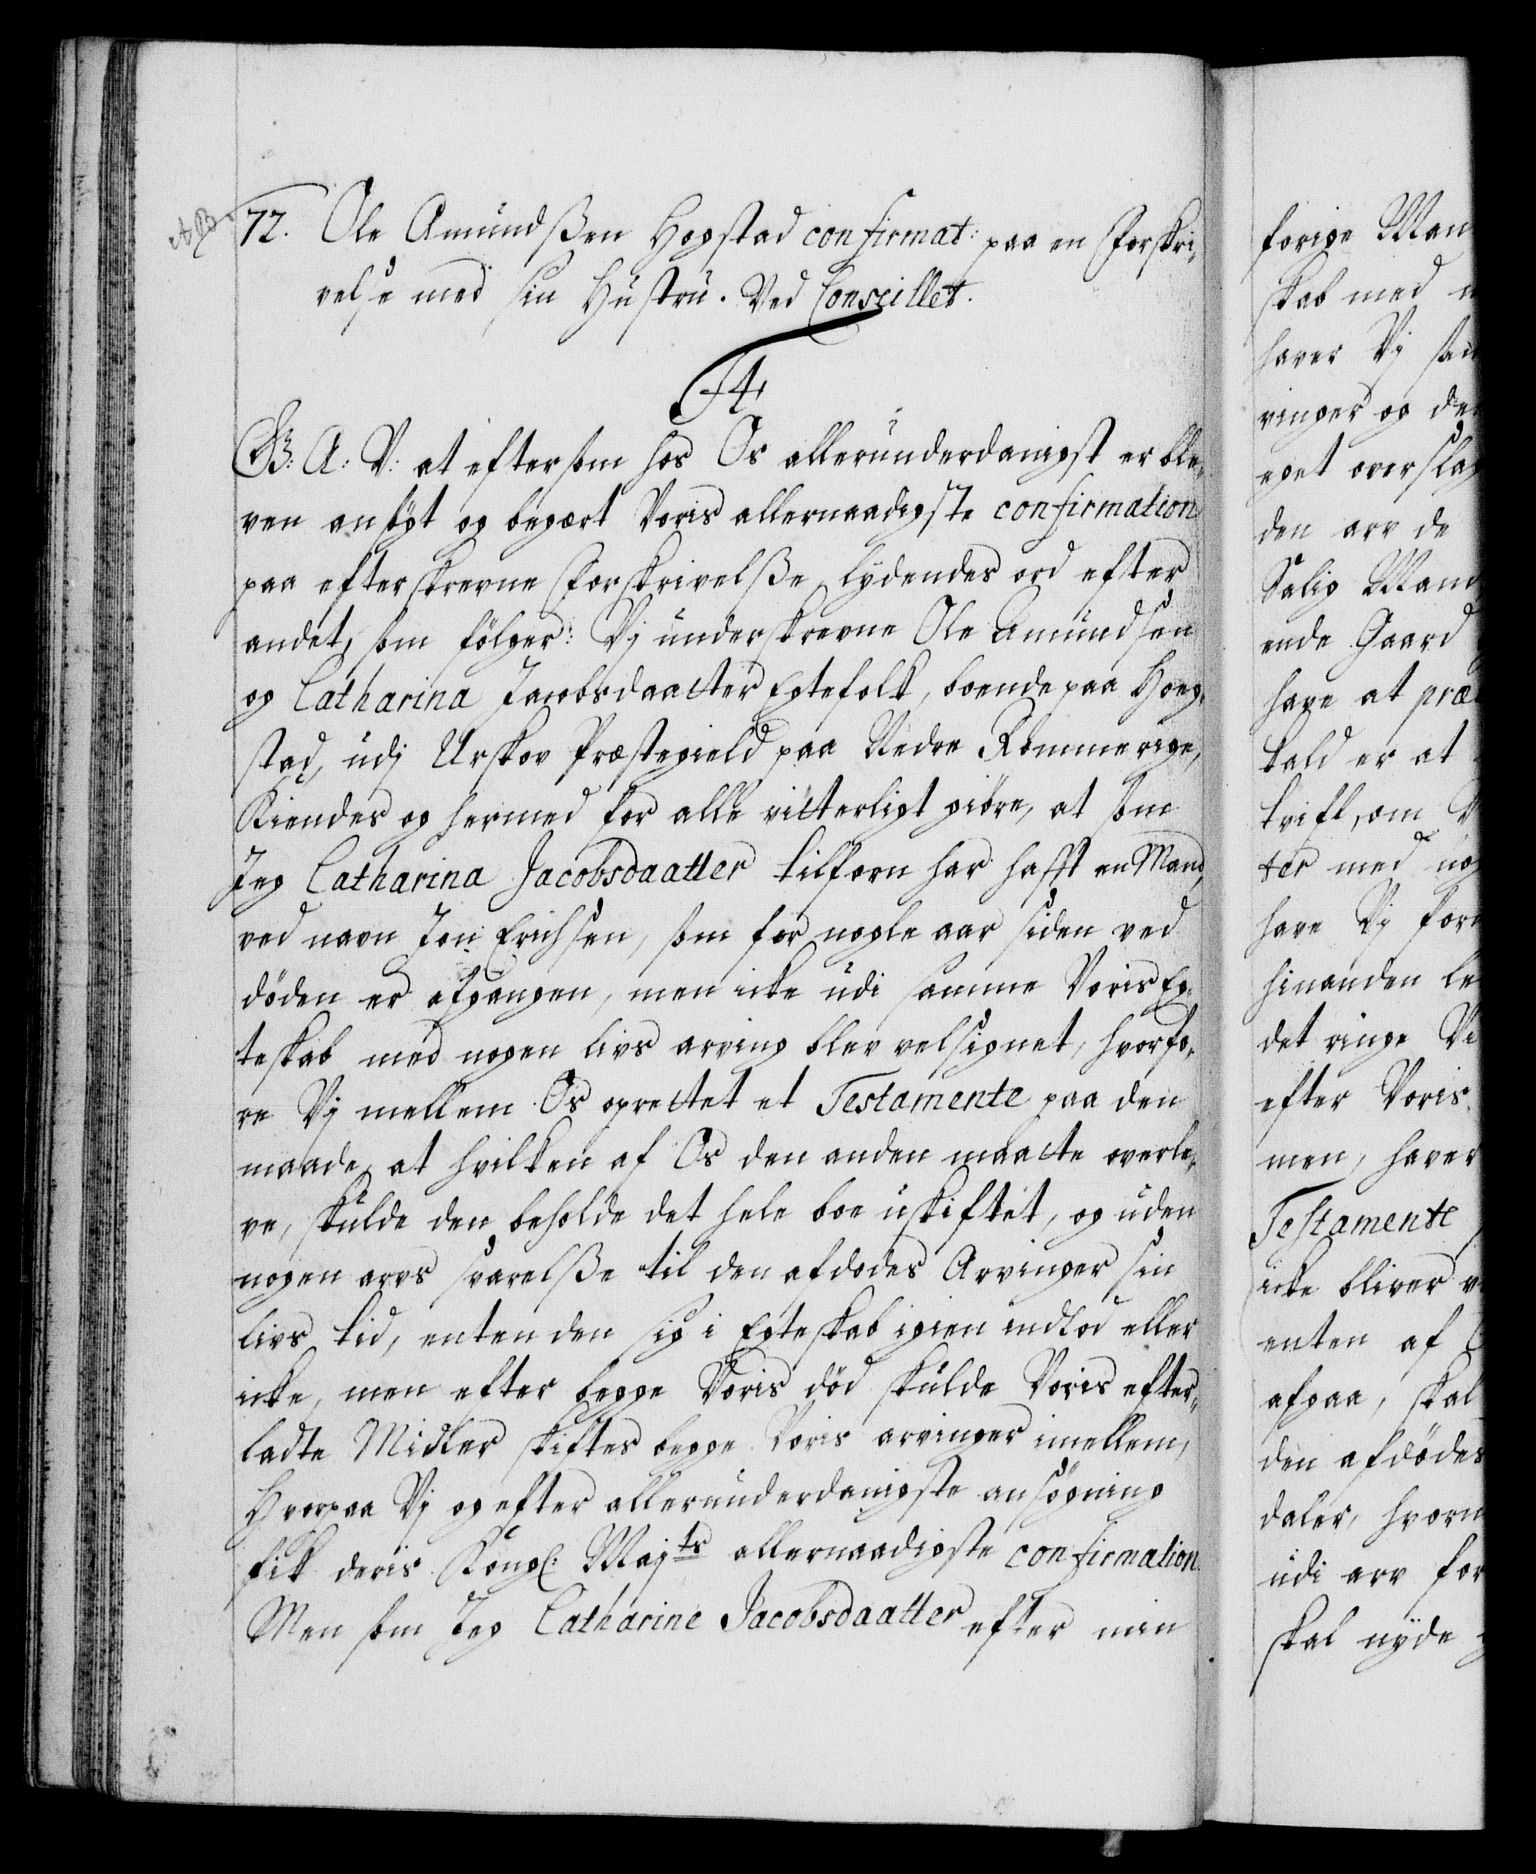 AB.
72. Ole Amundßen Hogstad confirmat: paa en Forskri-
velse med sin Hustru. Ved Conseillet.
F4.
G. A: V: at eftersom hos Os allerunderdanigst er ble-
ven ansögt og begært Voris allernaadigste confirmation
paa efterskrevne Forskrivelße, lydendes ord efter
andet, som fölger: Vj underskrevne Ole Amundsen
og Catharina Jacobsdaatter Egtefolk, boende paa Hog-
stad, udj Urskov Præstegield paa Nedre Rommerige,
Kiendes og hermed for alle vitterligt giöre, at som
Jeg Catharina Jacobsdaatter tilforn har hafft en Mand,
ved navn Jon Erichsen, som for nogle aar siden ved
döden er afgangen, men icke udi samme Voris Eg-
teskab med nogen livs arving blev velsignet, hvorfo-
re Vj mellem Os oprettet et Testamente paa den
maade, at hvilken af Os den anden maatte overle-
ve, skulde den beholde det hele boe uskiftet, og uden
nogen arvs svarelße til den afdodes Arvinger sin
livs tid, enten den sig i Egteskab igien indlod eller
icke, men efter begge Voris död skulde Voris efter-
ladte Midler skiftes begge Voris arvinger imellem,
Hvorpaa Vj og efter allerunderdanigste ansögning
fik deris Kongl: Majts allernaadigste confirmation
Men som Jeg Catharine Jacobsdaatter efter min
forige Man
skab med
haver Vj
vinger og de
eget overslag
den arv de
Salig Mand
ende Gaard
have at præ
kald er at
tvifl, om
ter med nog
have Vj
hinanden
det ringe
efter Voris
men, haver
Testamente
icke bliver
enten af
afgaa, skal
den afdödes
daler, hvorm
udi arv for
skal nyde